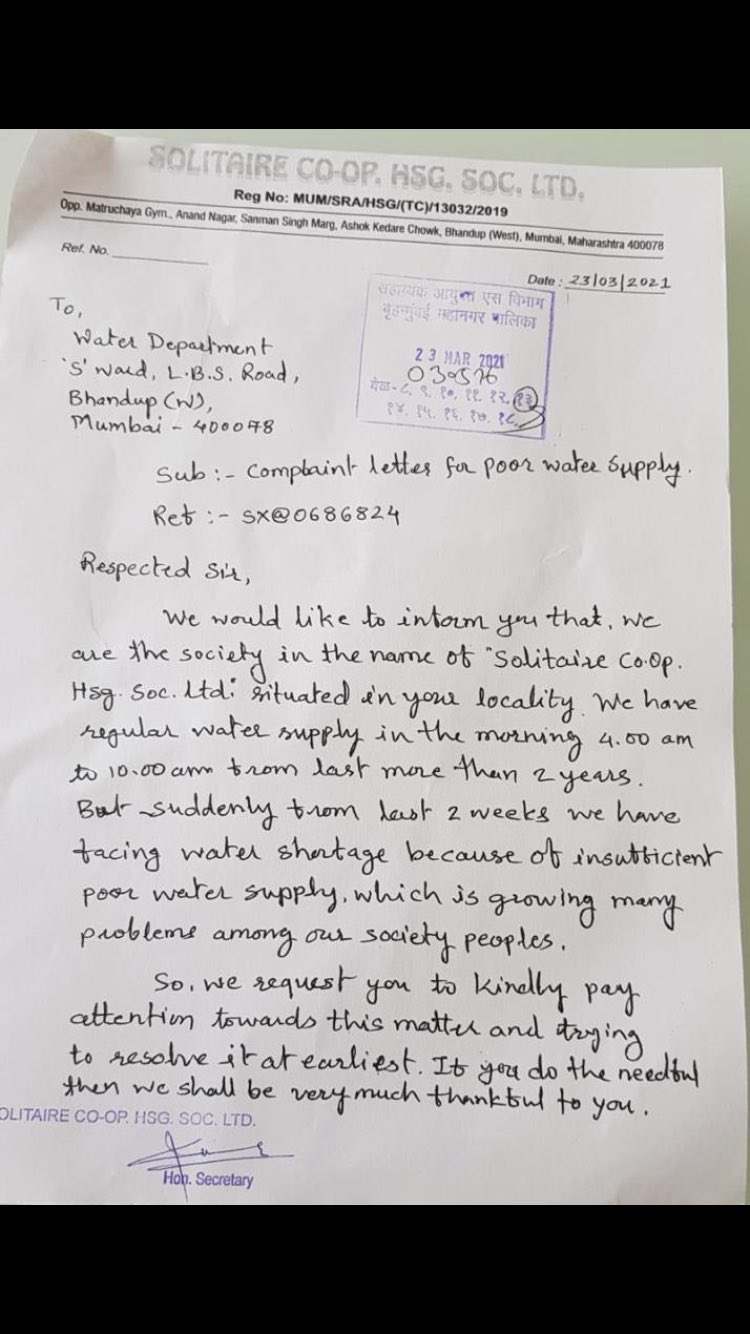 SOLITAIRE CO-OP. HSG. SOC. LTD.
Reg No: MUM/SRA/HSG/(TC)/13032/2019
Opp. Matruchaya Gym., Anand Nagar, Sanman Singh Marg, Ashok Kedare Chowk, Bhandup (West), Mumbai, Maharashtra 400078
Ref. No.
Date : 23/03/2021
सहाय्यक आयुक्त एस विभाग
बृहन्मुंबई महानगर पालिका
23 MAR 2021
030576
वेळ - ८, ९, १०, ११, १२, १३
१४, १५, १६, १७, १८,
To,
Water Department
'S' Ward, L.B.S. Road,
Bhandup (W),
Mumbai - 400078
Sub :- Complaint letter for poor water supply.
Ref :- SX@0686824
Respected Sir,
We would like to inform you that, we
are the society in the name of "Solitaire Co.Op.
Hsg. Soc. Ltd." situated in your locality. We have
regular water supply in the morning 4.00 am
to 10.00 am from last more than 2 years.
But suddenly from last 2 weeks we have
facing water shortage because of insufficient
poor water supply, which is growing many
problems among our society peoples.
So, we request you to kindly pay
attention towards this matter and trying
to resolve it at earliest. If you do the needful
then we shall be very much thankful to you.
OLITAIRE CO-OP. HSG. SOC. LTD.
Hon. Secretary